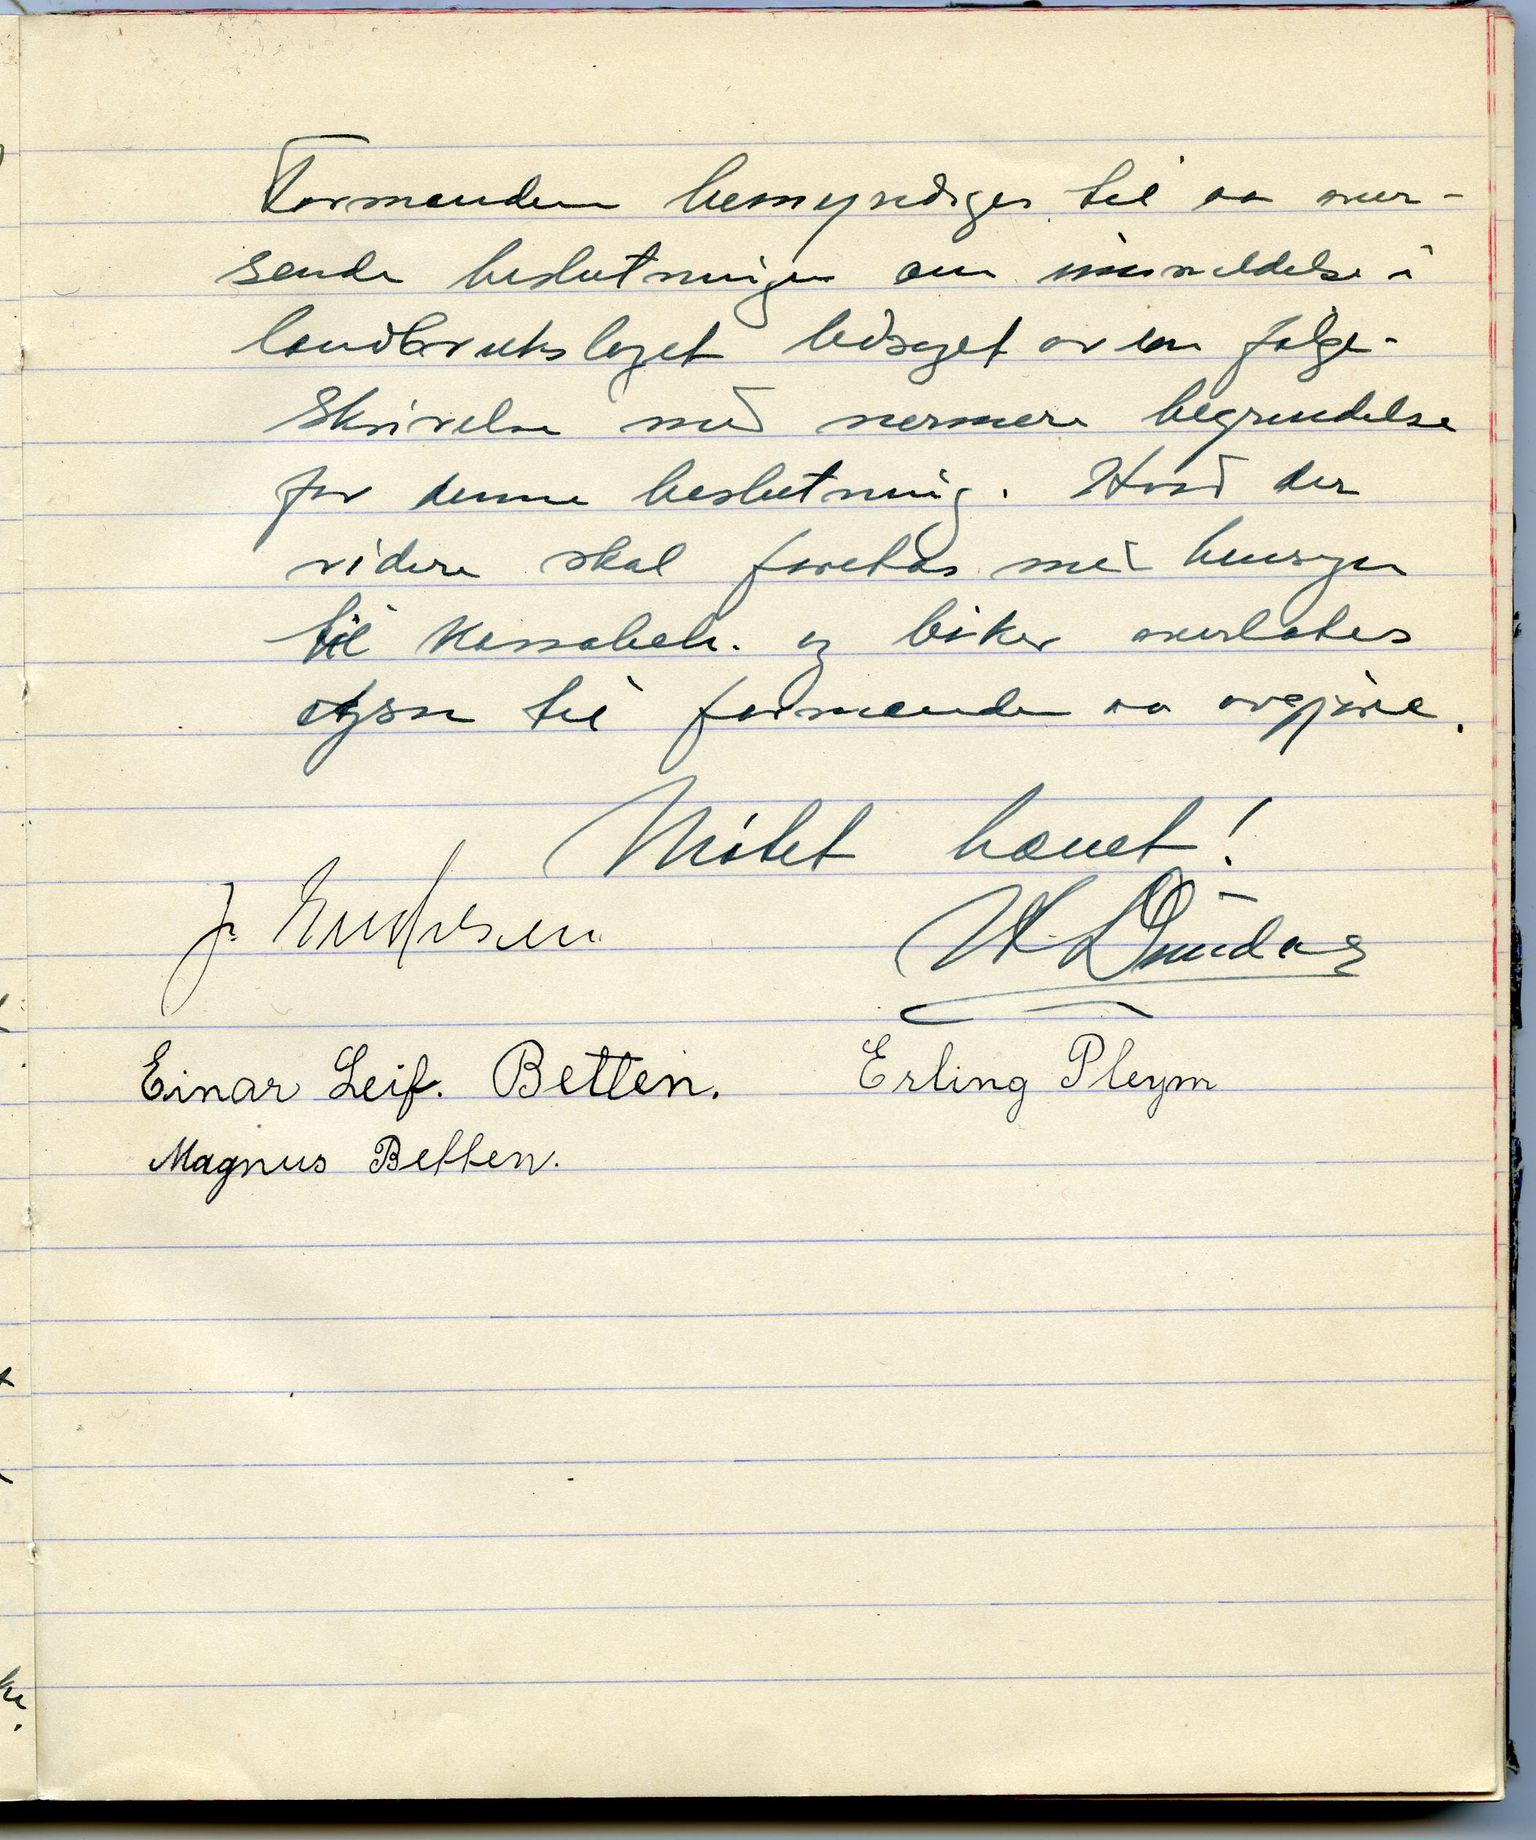 Formanden bemyndiges til aa over-
sende beslutningen om innmeldelse i
landbrukslaget ledsaget av en følge-
skrivelse med nermere begrundelse
for denne beslutning. Hvad der
videre skal foretas med hensyn
til kassabeh. og bøker overlates
til formanden aa avgjøre.
Møtet hævet!
J. W. Dundas
Einar Leif. Betten. Erling Pleym
Magnus Betten.